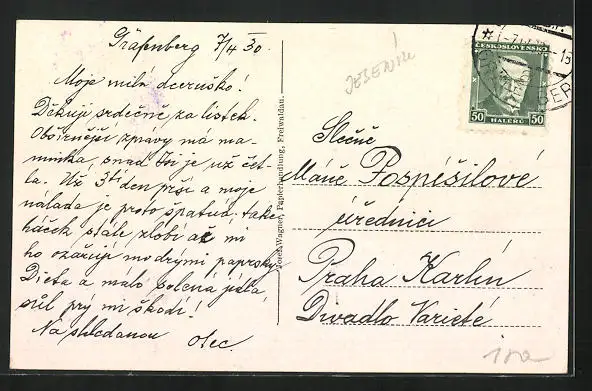 Gräfenberg 7/4 30.
Moje milá dceruško!
Děkuji srdečně za lístek.
Obšírnější zprávy má ma-
minka, snad jsi je už čet-
la. Už 3tí den prší a moje
nálada je proto špatná, také
háček stále zlobí ač mi
ho ozařují modrými paprsky.
Dieta a málo solená jídla,
sůl prý mi škodí!
Na shledanou otec.
Josef Wagner, Papierhandlung, Freiwaldau.
JESENÍK
ČESKOSLOVENSKO
50 HALÉRŮ 50
Slečně
Máně Pospěšilové
úřednici
Praha Karlín
Divadlo Varieté